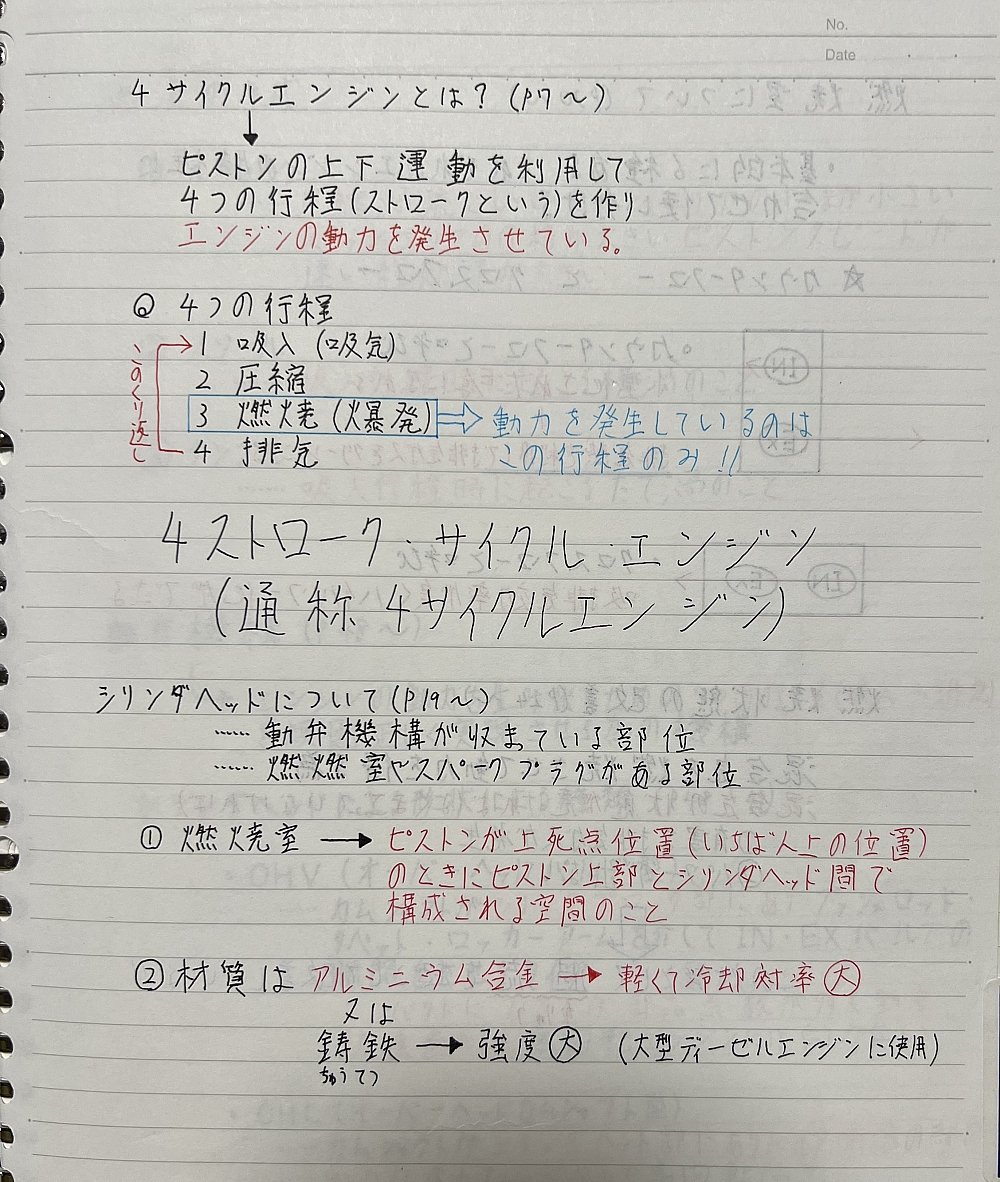 No.
Date
4サイクルエンジンとは?(P17〜)
↓
ピストンの上下運動を利用して
4つの行程(ストロークという)を作り
エンジンの動力を発生させている。
◎ 4つの行程
1 吸入(吸気)
2 圧縮
3 燃焼(爆発) ⇒ 動力を発生しているのは
4 排気 この行程のみ!!
このくり返し
4ストローク・サイクル・エンジン
(通称4サイクルエンジン)
シリンダヘッドについて(P19〜)
…… 動弁機構が収まている部位
…… 燃燃室やスパークプラグがある部位
① 燃焼室 → ピストンが上死点位置(いちばん上の位置)
のときにピストン上部とシリンダヘッド間で
構成される空間のこと
② 材質は アルミニウム合金 → 軽くて冷却対率大
又は
鋳鉄 → 強度大 (大型ディーゼルエンジンに使用)
ちゅうてつ